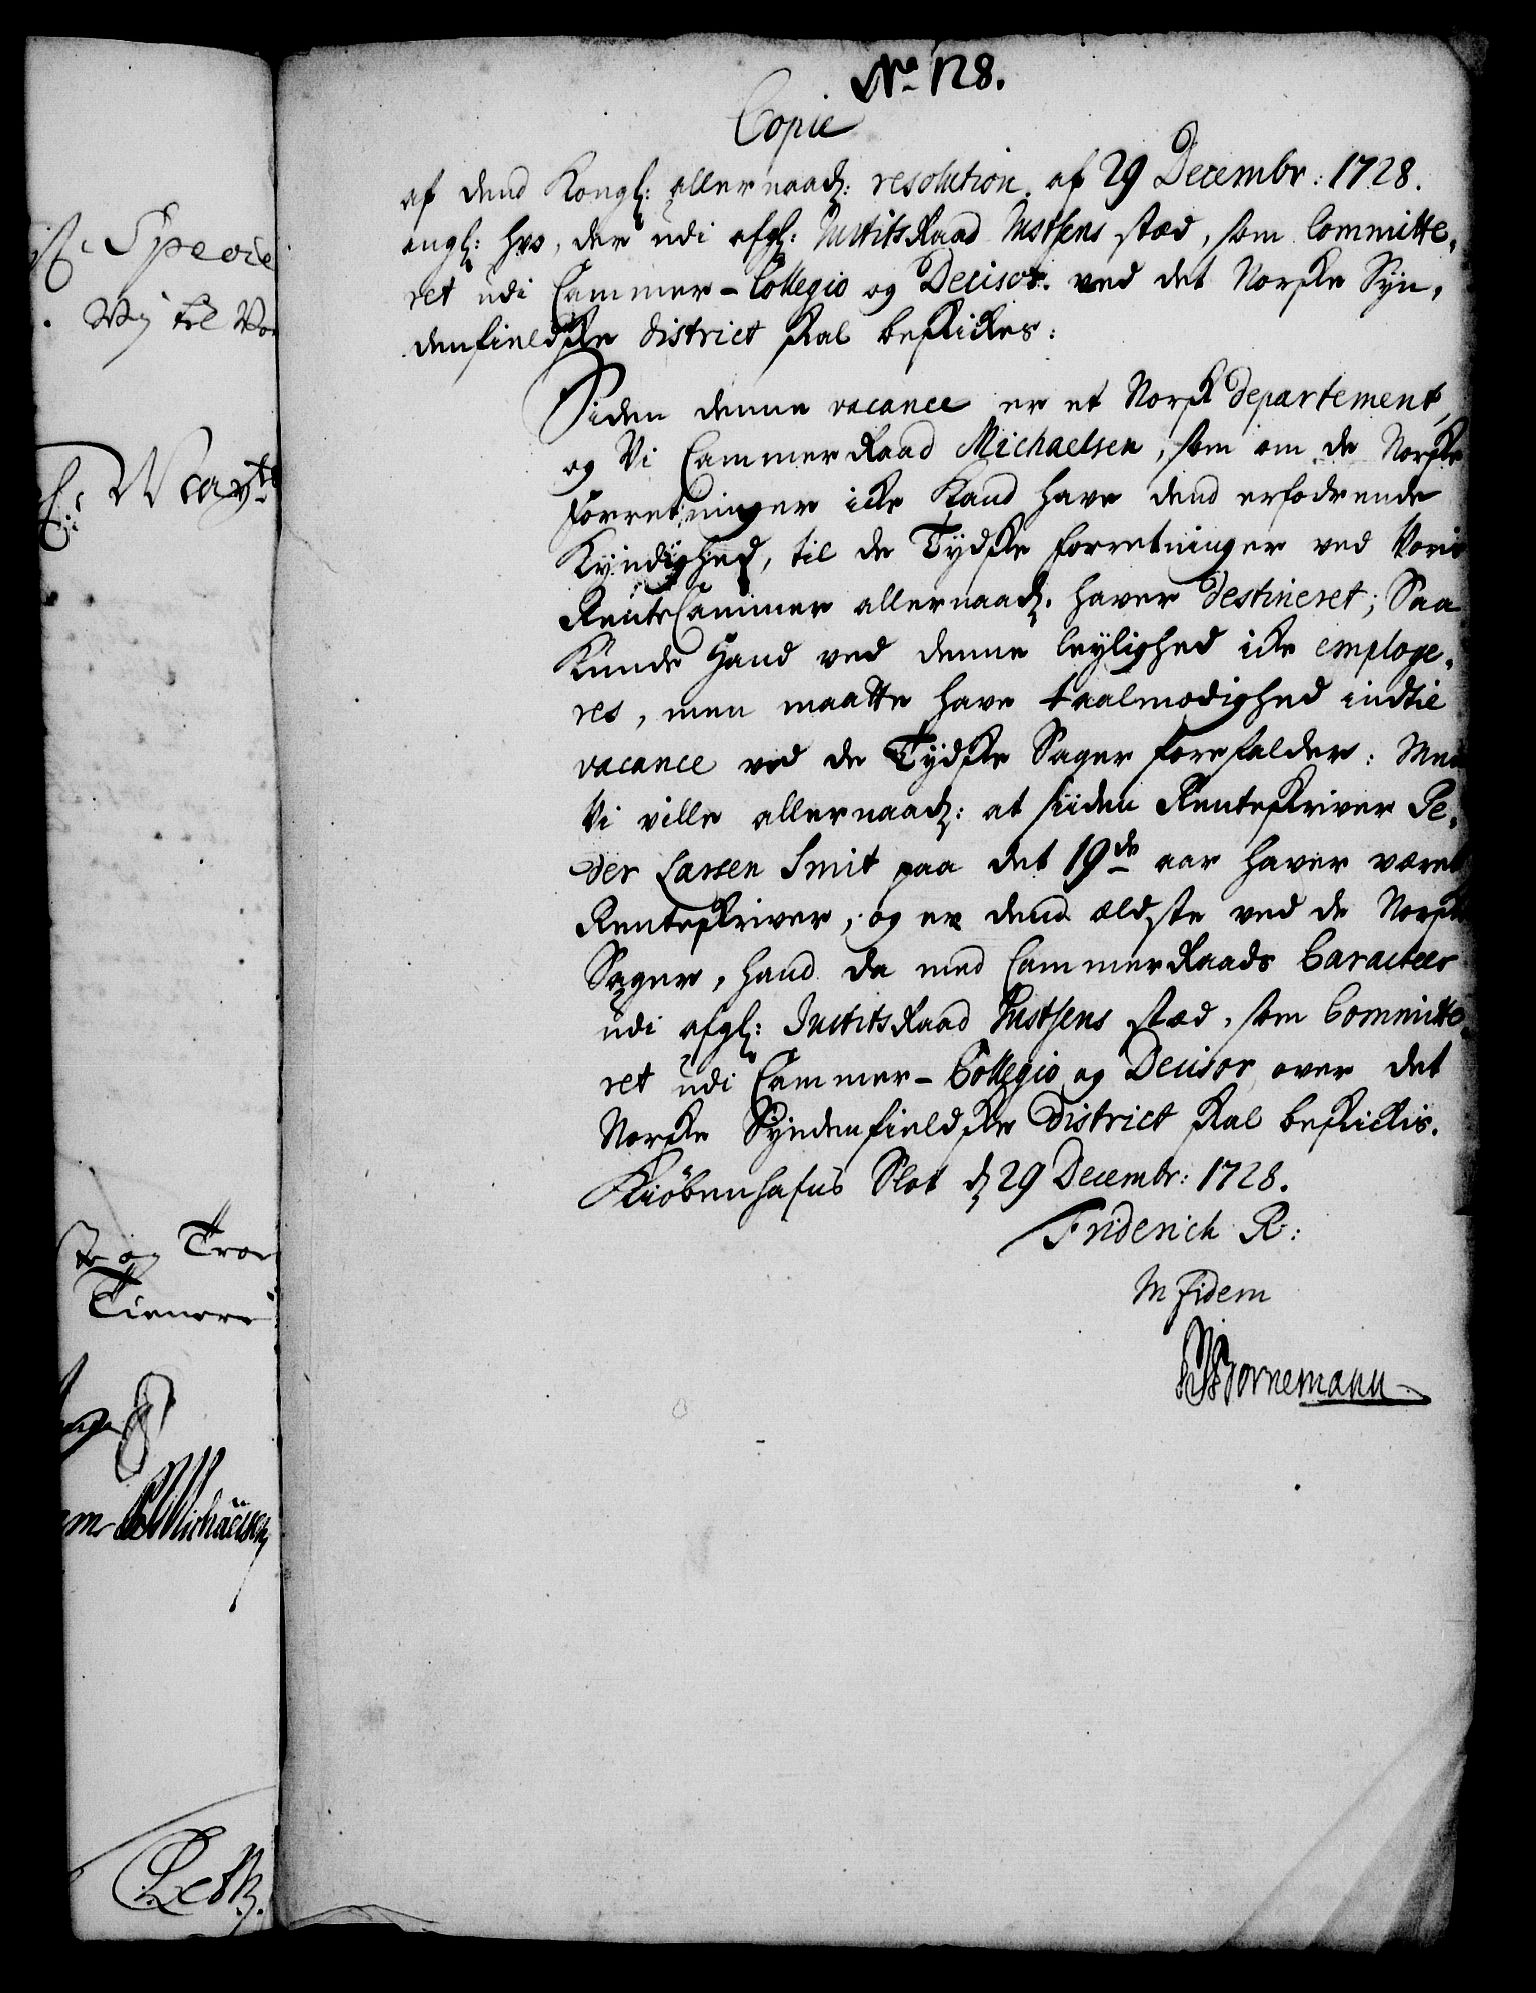 No 128.
Copie
af dend Kongl: allernaad: resolution af 29 Decembr: 1728.
angl: hvo, der udi afgl: JustitsRaad Justsens stæd, som Committe,
ret udi Cammer-Collegio og Decisor ved det Norske Syn,
denfieldske district skal beskickes:
Siden denne vacance er et Norsk departement,
og Vi CammerRaad Michaelsen, som om de Norske
Forretninger icke Kand have dend erfodrende
Kyndighed, til de Tydske forretninger ved Voris
RenteCammer allernaad: haver destineret; Saa
Kunde Hand ved denne leylighed icke employe,
res, men maatte have taalmodighed indtil
vacance ved de Tydske Sager forefalder: Men
Vi ville allernaad: at siiden Renteskriver Pe,
der Larsen Smit paa det 19de aar haver været
Renteskriver, og er dend ældste ved de Norske
Sager, hand da med CammerRaads Caracteer
udi afgl: JustitsRaad Justsens stæd, som Committe,
ret udi Cammer-Collegio og Decisor over det
Norske Syndenfieldske District skal beskickis.
Kiöbenhafns Slot d 29 Decembr: 1728.
Friderich R:
In fidem
Bornemann
Specie
til Vor
og
Tienere
Michaelsen